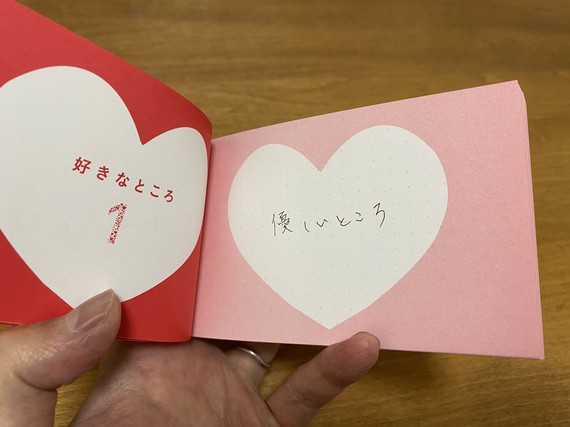 好きなところ
1
優しいところ